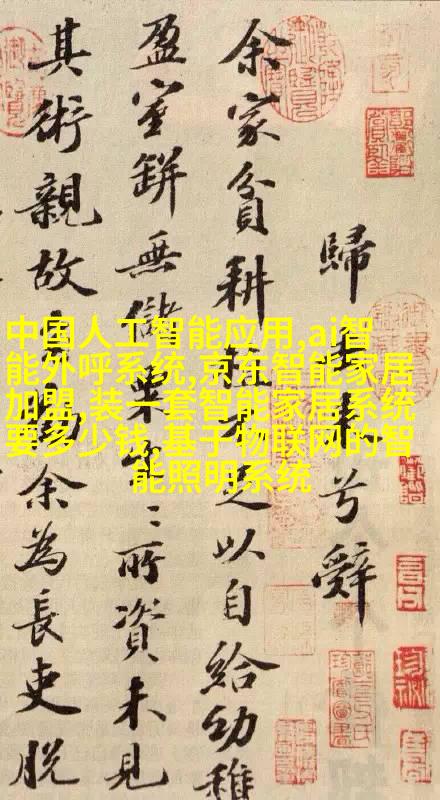 歸去來兮辭
余家貧耕植不足以自給幼稚
盈室缾無儲粟生〻所資未見
其術親故多勸余為長吏脫
中国人工智能应用,ai智
能外呼系统,京东智能家居
加盟,装一套智能家居系统
要多少钱,基于物联网的智
能照明系统